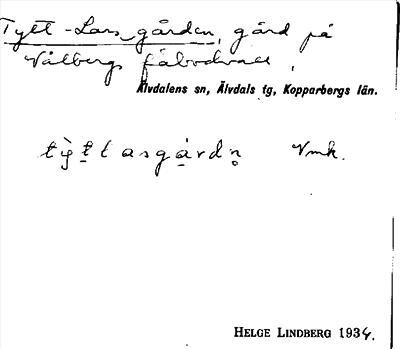 Tytt-Lars gården, gård på
Vålbergs fäbodvall,
Älvdalens sn, Älvdals tg, Kopparbergs län.
tỳt̲tasgạrdn̥ Vmk.
HELGE LINDBERG 1934.